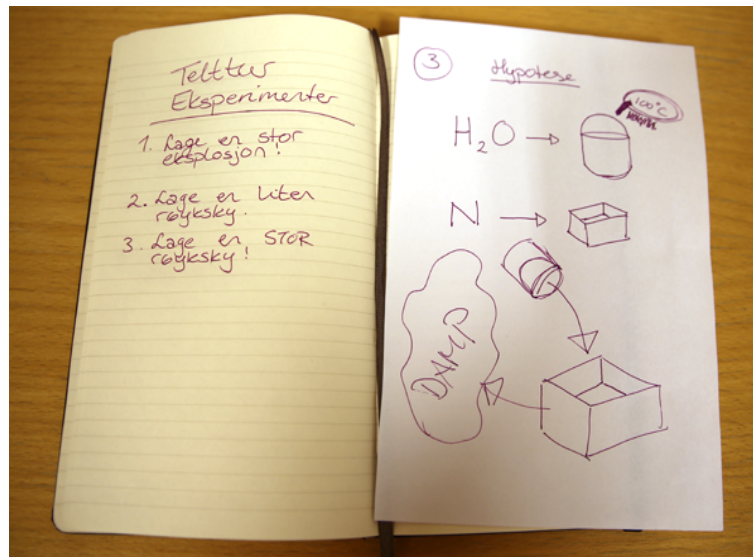 Telttur
Eksperimenter
1. Lage en stor
eksplosjon!
2. Lage en liten
røyksky.
3. Lage en STOR
røyksky!
3
Hypotese
100°C
H₂O →
N →
DAMP